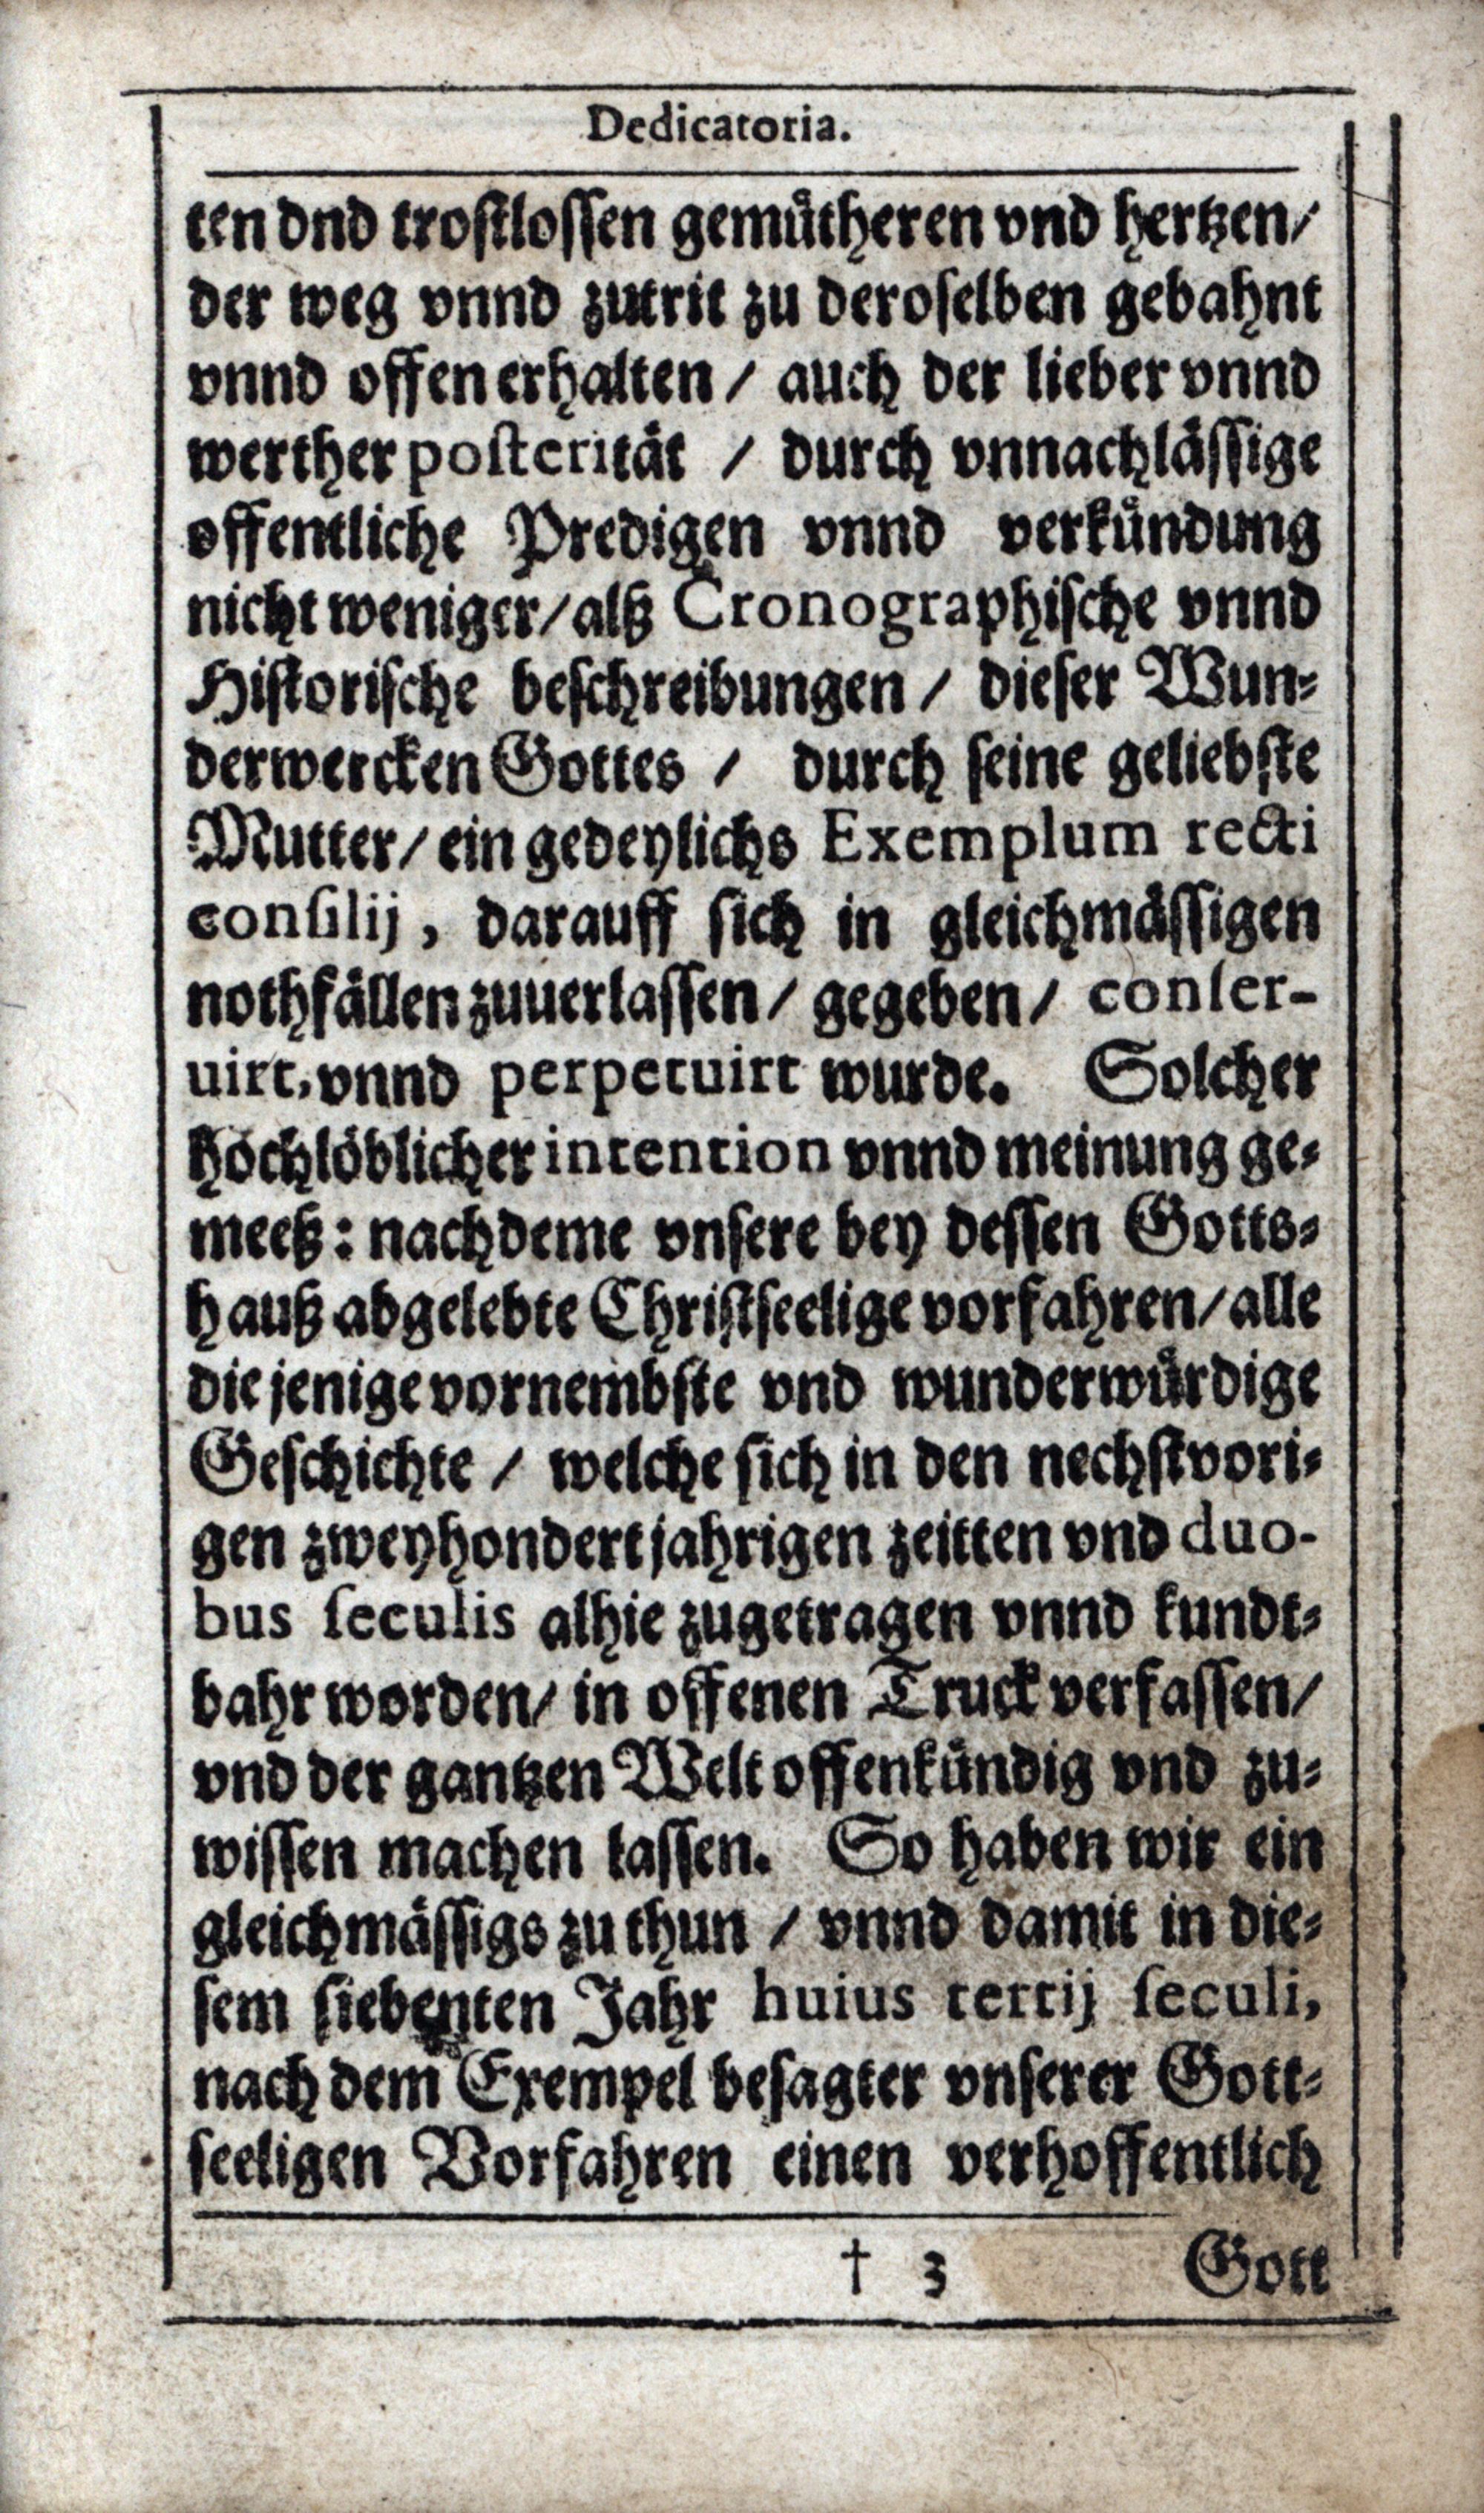 Dedicatoria.
ten vnd trostlossen gemütheren vnd hertzen/
der weg vnnd zutrit zu deroselben gebahnt
vnnd offen erhalten / auch der lieber vnnd
werther posterität / durch vnnachlässige
offentliche Predigen vnnd verkündung
nicht weniger/ alß Cronographische vnnd
Historische beschreibungen / dieser Wun-
derwercken Gottes / durch seine geliebste
Mutter/ ein gedeylichs Exemplum recti
consilij, darauff sich in gleichmässigen
nothfällen zuuerlassen/ gegeben/ conser-
uirt, vnnd perpetuirt wurde. Solcher
hochlöblicher intention vnnd meinung ge-
meeß: nachdeme vnsere bey dessen Gotts-
hauß abgelebte Christseelige vorfahren/ alle
die jenige vornembste vnd wunderwürdige
Geschichte / welche sich in den nechstvori-
gen zweyhondert jahrigen zeitten vnd duo-
bus seculis alhie zugetragen vnnd kundt-
bahr worden/ in offenen Truck verfassen/
vnd der gantzen Welt offenkündig vnd zu-
wissen machen lassen. So haben wir ein
gleichmässigs zu thun / vnnd damit in die-
sem siebenten Jahr huius tertij seculi,
nach dem Exempel besagter vnserer Gott-
seeligen Vorfahren einen verhoffentlich
† 3 Gott